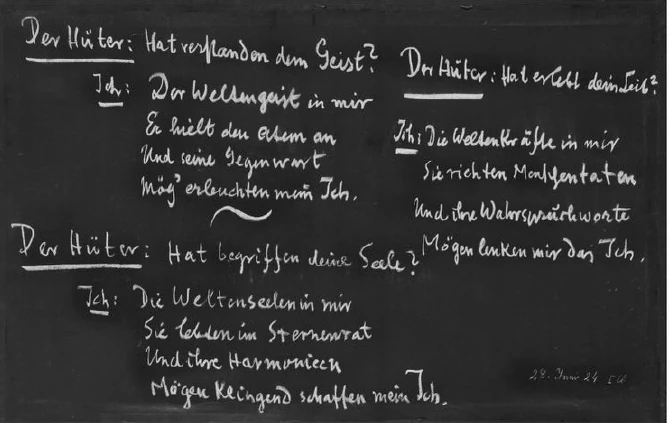 Der Hüter: Hat verstanden dein Geist?
Ich: Der Weltengeist in mir
Er hielt den Atem an
Und seine Gegenwart
Mög' erleuchten mein Ich.
Der Hüter: Hat begriffen deine Seele?
Ich: Die Weltenseelen in mir
Sie lebten im Sternenrat
Und ihre Harmonieen
Mögen klingend schaffen mein Ich.
Der Hüter: Hat erlebt dein Leib?
Ich: Die Weltenkräfte in mir
Sie richten Menschentaten
Und ihre Wahrspruchworte
Mögen lenken mir das Ich.
24